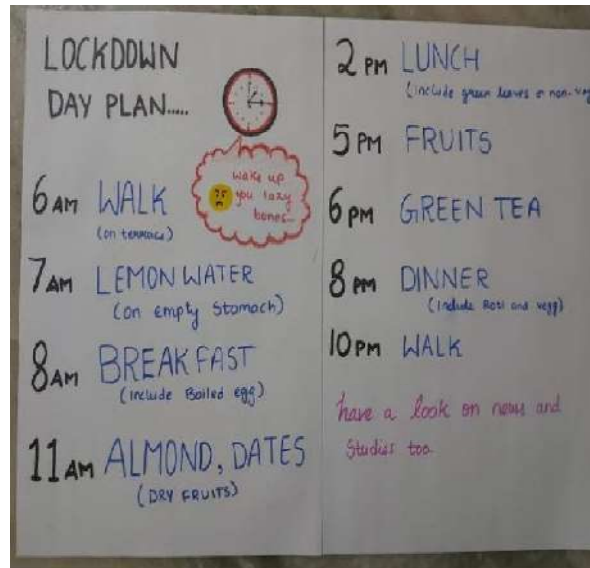 LOCKDOWN
DAY PLAN.....
wake up
you lazy
bones...
6 AM WALK
(on terrace)
7 AM LEMON WATER
(on empty Stomach)
8 AM BREAKFAST
(include Boiled egg)
11 AM ALMOND, DATES
(DRY FRUITS)
2 PM LUNCH
(include green leaves or non-veg
5 PM FRUITS
6 pm GREEN TEA
8 pm DINNER
(include Roti and vegg)
10 PM WALK
have a look on news and
Studies too.